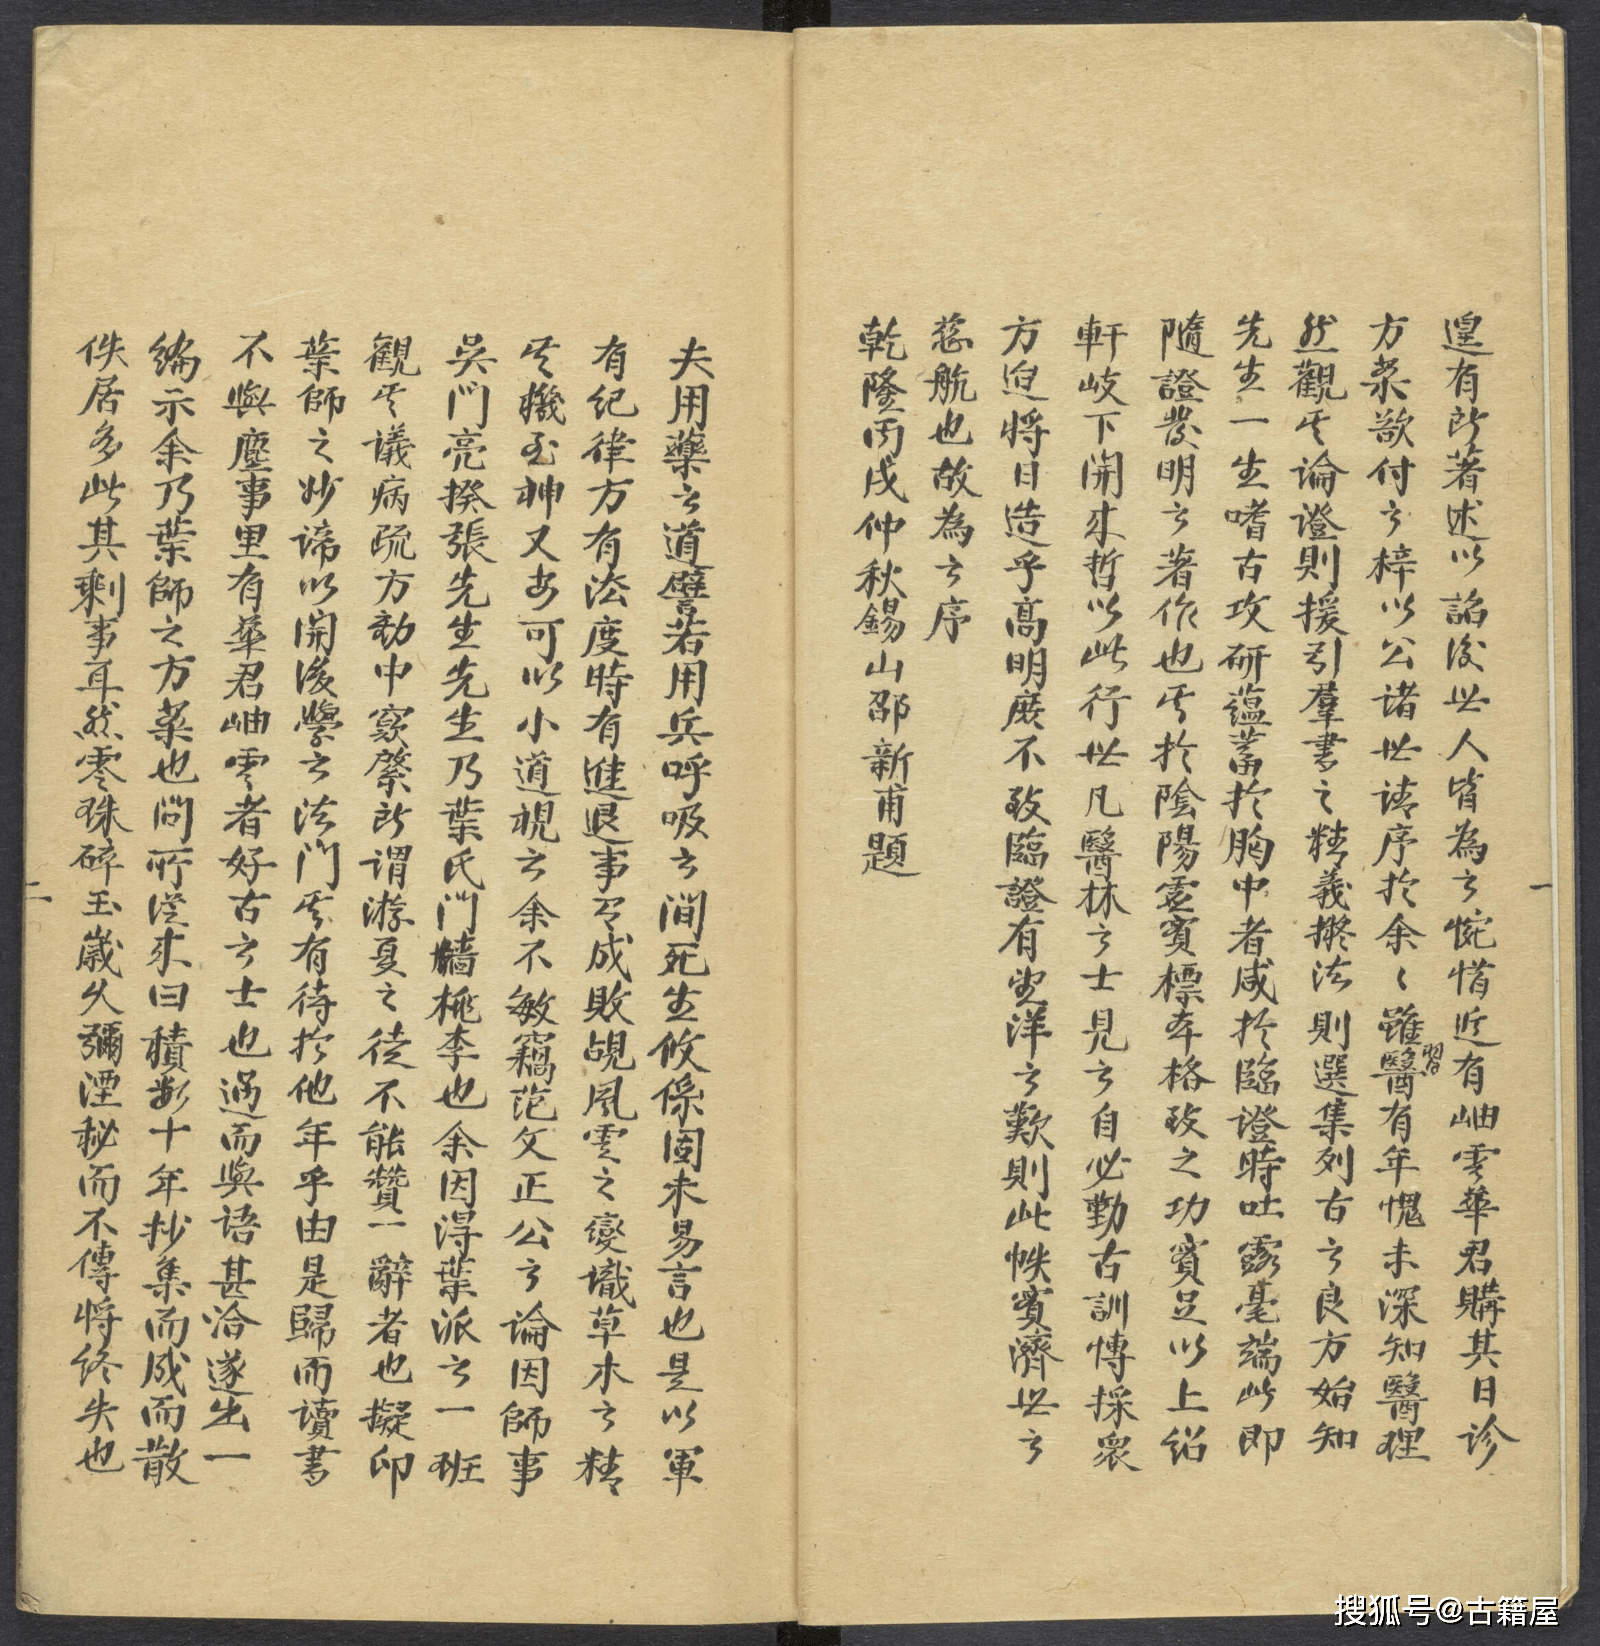 遑有所著述以詒後世人皆為之惋惜近有岫雲華君購其日診
方案欲付之梓以公諸世請序於余〻雖習醫有年愧未深知醫理
然觀其論證則援引羣書之精義擬法則選集列古之良方始知
先生一生嗜古攻研蘊蓄於胸中者咸於臨證時吐露毫端此即
隨證發明之著作也其於陰陽虛實標本格致之功實足以上紹
軒岐下開來哲以此行世凡醫林之士見之自必勤古訓博採衆
方迫將日造乎高明庶不致臨證有望洋之歎則此帙實濟世之
慈航也故為之序
乾隆丙戌仲秋錫山邵新甫題
一
夫用藥之道譬若用兵呼吸之間死生攸係固未易言也是以軍
有紀律方有法度時有進退事有成敗覘風雲之變熾草木之精
其機至神又安可以小道視之余不敏竊范文正公之論因師事
吳門亮揆張先生先生乃葉氏門牆桃李也余因得葉派之一班
觀其議病疏方動中窾綮所謂游夏之徒不能贊一辭者也擬印
葉師之妙諦以開後學之法門其有待於他年乎由是歸而讀書
不與塵事里有華君岫雲者好古之士也過而與語甚洽遂出一
編示余乃葉師之方案也問所從來曰積數十年抄集而成而散
佚居多此其剩事耳然零珠碎玉歲久彌湮秘而不傳將終失也
二
搜狐号@古籍屋